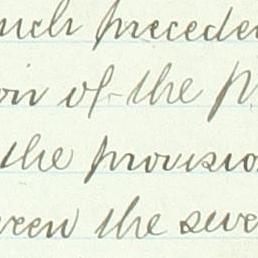 such preceden
on of the P
the provisio
ween the seve